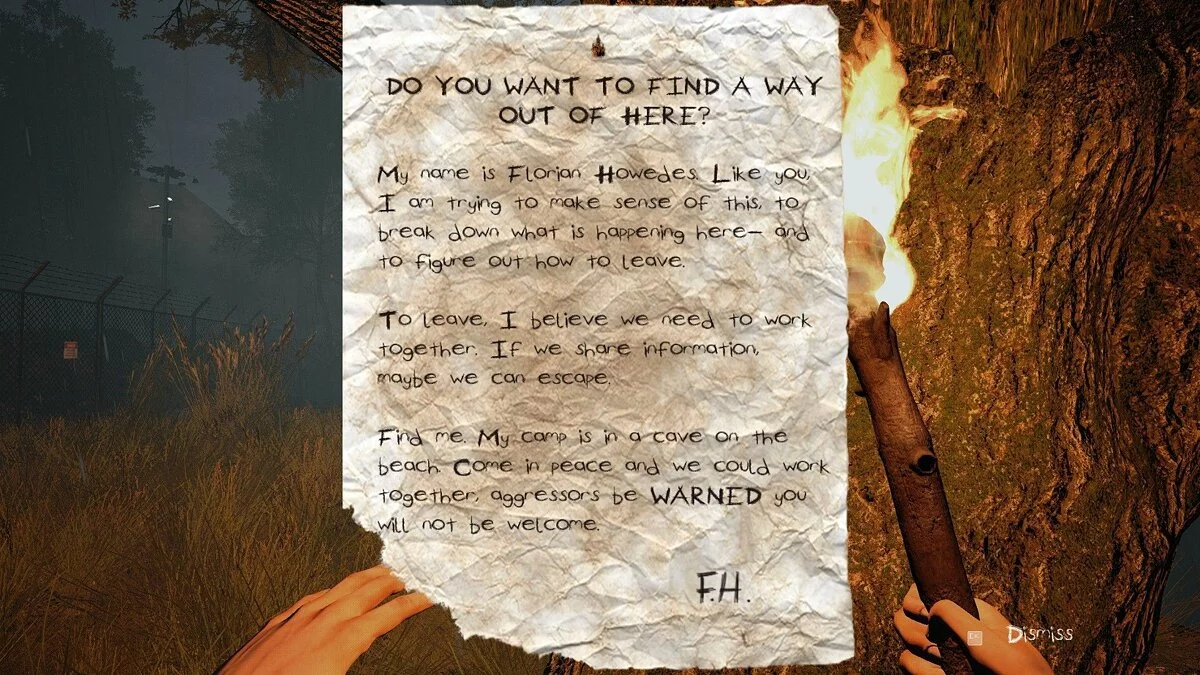 DO YOU WANT TO FIND A WAY
OUT OF HERE?
My name is Florian Howedes. Like you,
I am trying to make sense of this, to
break down what is happening here- and
to figure out how to leave.
To leave, I believe we need to work
together. If we share information,
maybe we can escape.
Find me. My camp is in a cave on the
beach. Come in peace and we could work
together, aggressors be WARNED you
will not be welcome.
F.H.
Dismiss